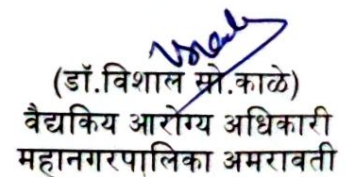 (डॉ.विशाल सो.काळे)
वैद्यकिय आरोग्य अधिकारी
महानगरपालिका अमरावती